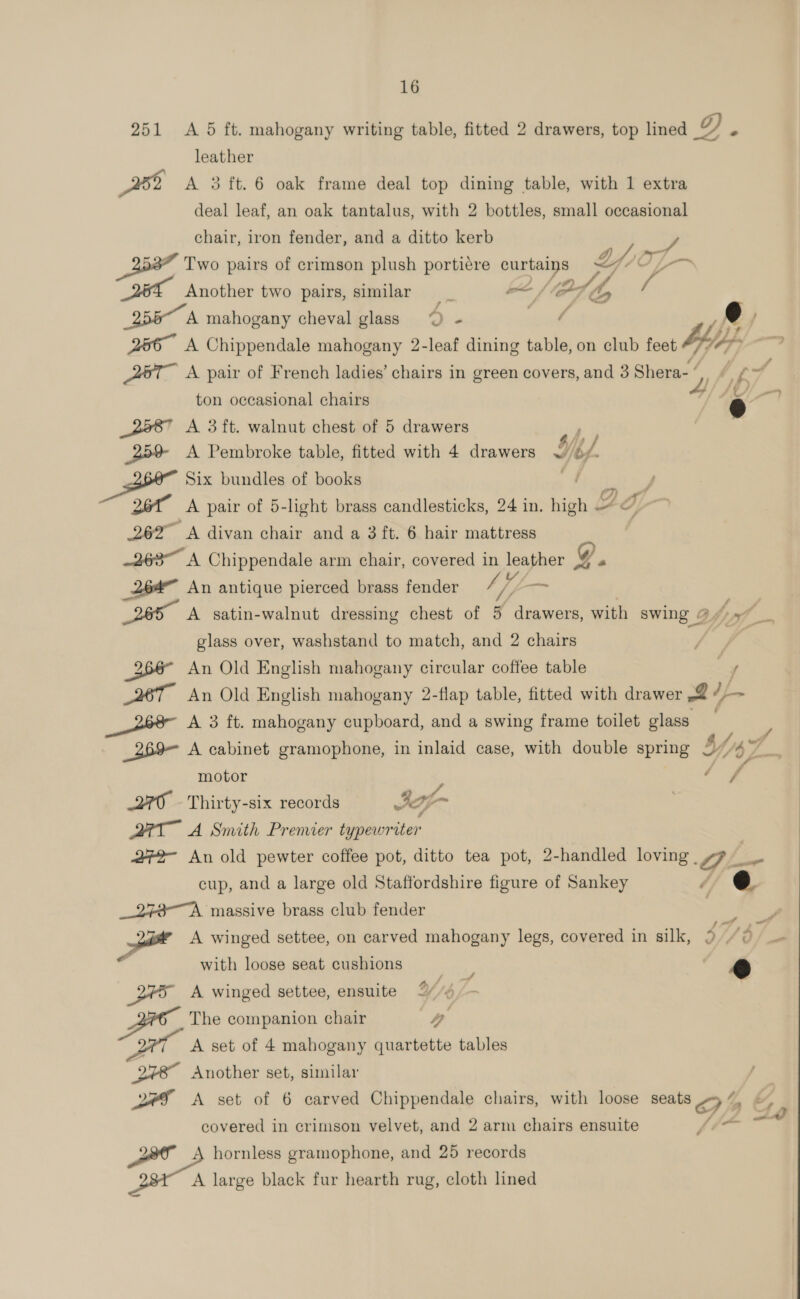 16
251 A 5 ft. mahogany writing table, fitted 2 drawers, top lined
leather
252 A 3 ft. 6 oak frame deal top dining table, with 1 extra
deal leaf, an oak tantalus, with 2 bottles, small occasional
chair, iron fender, and a ditto kerb
253 Two pairs of crimson plush portière curtains
254 Another two pairs, similar
255 A mahogany cheval glass
256 A Chippendale mahogany 2-leaf dining table, on club feet
257 A pair of French ladies' chairs in green covers, and 3 Shera-
ton occasional chairs
258 A 3 ft. walnut chest of 5 drawers
259 A Pembroke table, fitted with 4 drawers
260 Six bundles of books
261 A pair of 5-light brass candlesticks, 24 in. high
262 A divan chair and a 3 ft. 6 hair mattress
263 A Chippendale arm chair, covered in leather
264 An antique pierced brass fender
265 A satin-walnut dressing chest of 5 drawers, with swing
glass over, washstand to match, and 2 chairs
266 An Old English mahogany circular coffee table
267 An Old English mahogany 2-flap table, fitted with drawer
268 A 3 ft. mahogany cupboard, and a swing frame toilet glass
269 A cabinet gramophone, in inlaid case, with double spring
motor
270 Thirty-six records
271 A Smith Premier typewriter
272 An old pewter coffee pot, ditto tea pot, 2-handled loving
cup, and a large old Staffordshire figure of Sankey
273 A massive brass club fender
274 A winged settee, on carved mahogany legs, covered in silk,
with loose seat cushions
275 A winged settee, ensuite
276 The companion chair
277 A set of 4 mahogany quartette tables
278 Another set, similar
279 A set of 6 carved Chippendale chairs, with loose seats
covered in crimson velvet, and 2 arm chairs ensuite
280 A hornless gramophone, and 25 records
281 A large black fur hearth rug, cloth lined